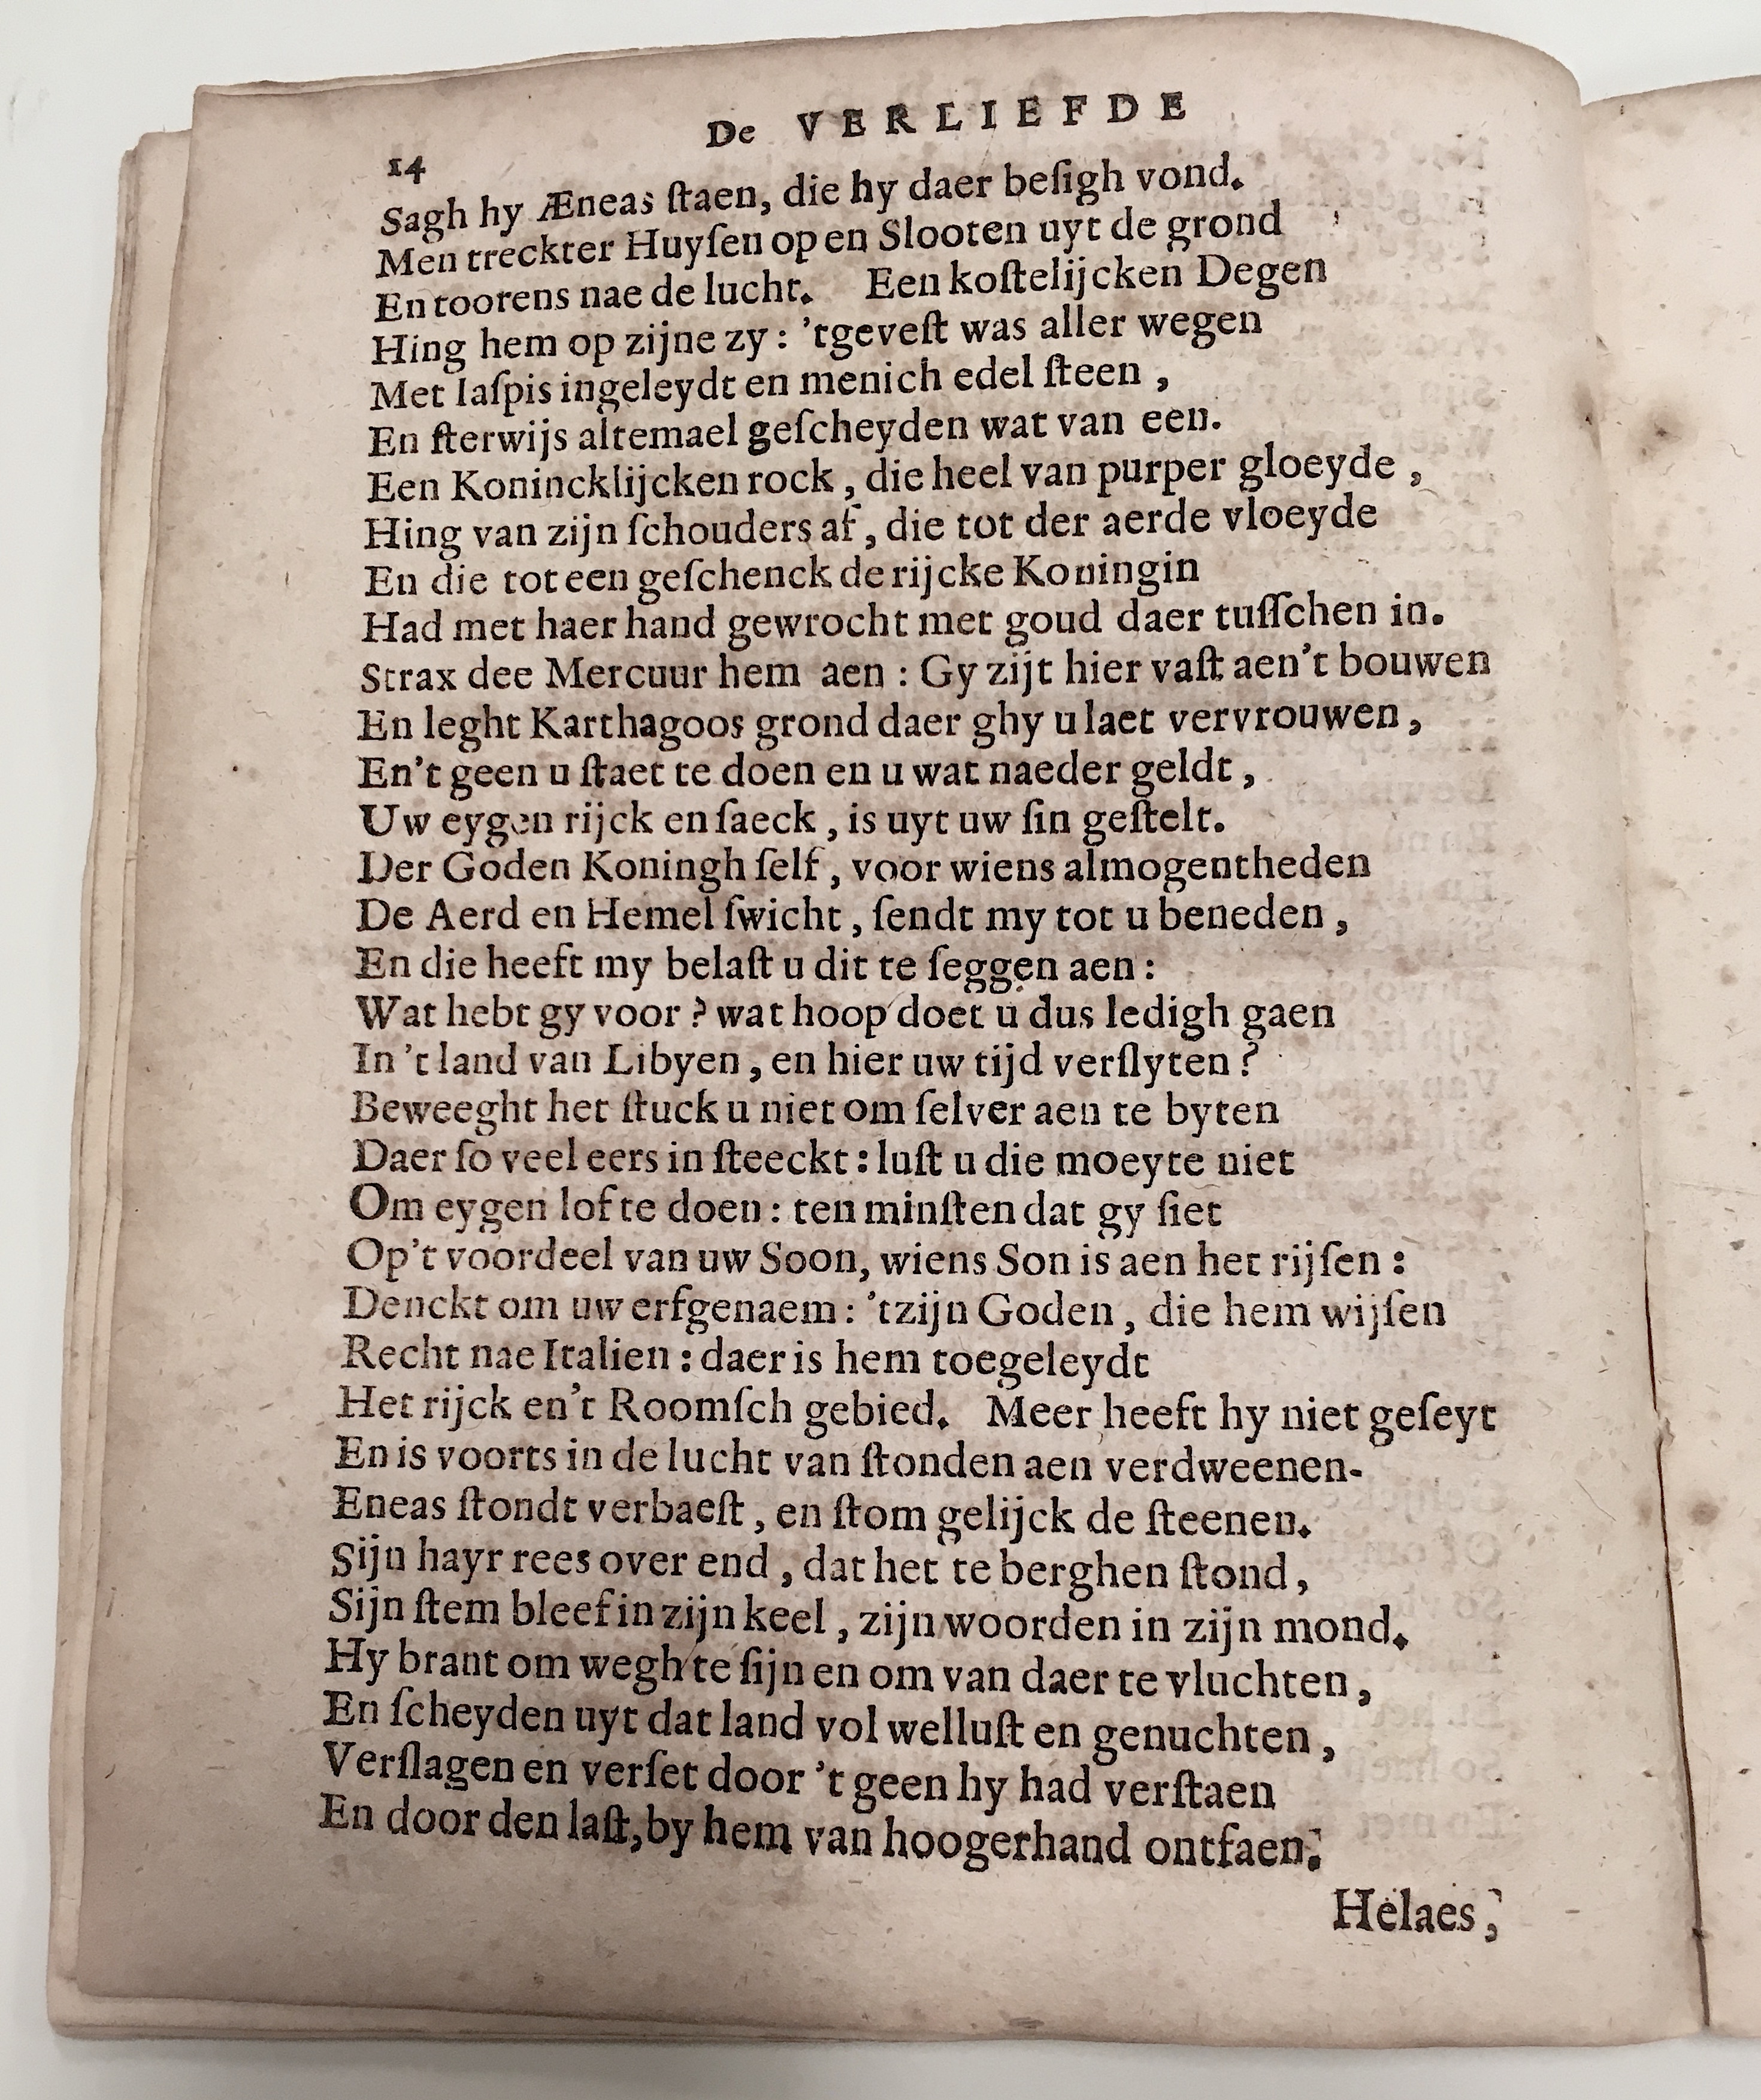 De VERLIEFDE
14
Sagh hy Æneas ſtaen, die hy daer beſigh vond.
Men treckter Huyſen op en Slooten uyt de grond
En toorens nae de lucht. Een koſtelijcken Degen
Hing hem op zijne zy: 'tgeveſt was aller wegen
Met Iaſpis ingeleydt en menich edel ſteen,
En ſterwijs altemael geſcheyden wat van een.
Een Konincklijcken rock, die heel van purper gloeyde,
Hing van zijn ſchouders af, die tot der aerde vloeyde
En die tot een geſchenck de rijcke Koningin
Had met haer hand gewrocht met goud daer tuſſchen in.
Strax dee Mercuur hem aen: Gy zijt hier vaſt aen't bouwen
En leght Karthagoos grond daer ghy u laet vervrouwen,
En't geen u ſtaet te doen en u wat naeder geldt,
Uw eygen rijck en ſaeck, is uyt uw ſin geſtelt.
Der Goden Koningh ſelf, voor wiens almogentheden
De Aerd en Hemel ſwicht, ſendt my tot u beneden,
En die heeft my belaſt u dit te ſeggen aen:
Wat hebt gy voor? wat hoop doet u dus ledigh gaen
In 't land van Libyen, en hier uw tijd verſlyten?
Beweeght het ſtuck u niet om ſelver aen te byten
Daer ſo veel eers in ſteeckt: luſt u die moeyte niet
Om eygen lof te doen: ten minſten dat gy ſiet
Op't voordeel van uw Soon, wiens Son is aen het rijſen:
Denckt om uw erfgenaem: 'tzijn Goden, die hem wijſen
Recht nae Italien: daer is hem toegeleydt
Het rijck en't Roomſch gebied. Meer heeft hy niet geſeyt
En is voorts in de lucht van ſtonden aen verdweenen-
Eneas ſtondt verbaeſt, en ſtom gelijck de ſteenen.
Sijn hayr rees over end, dat het te berghen ſtond,
Sijn ſtem bleef in zijn keel, zijn woorden in zijn mond.
Hy brant om wegh te ſijn en om van daer te vluchten,
En ſcheyden uyt dat land vol welluſt en genuchten,
Verſlagen en verſet door 't geen hy had verſtaen
En door den laſt, by hem van hoogerhand ontfaen.
Helaes,